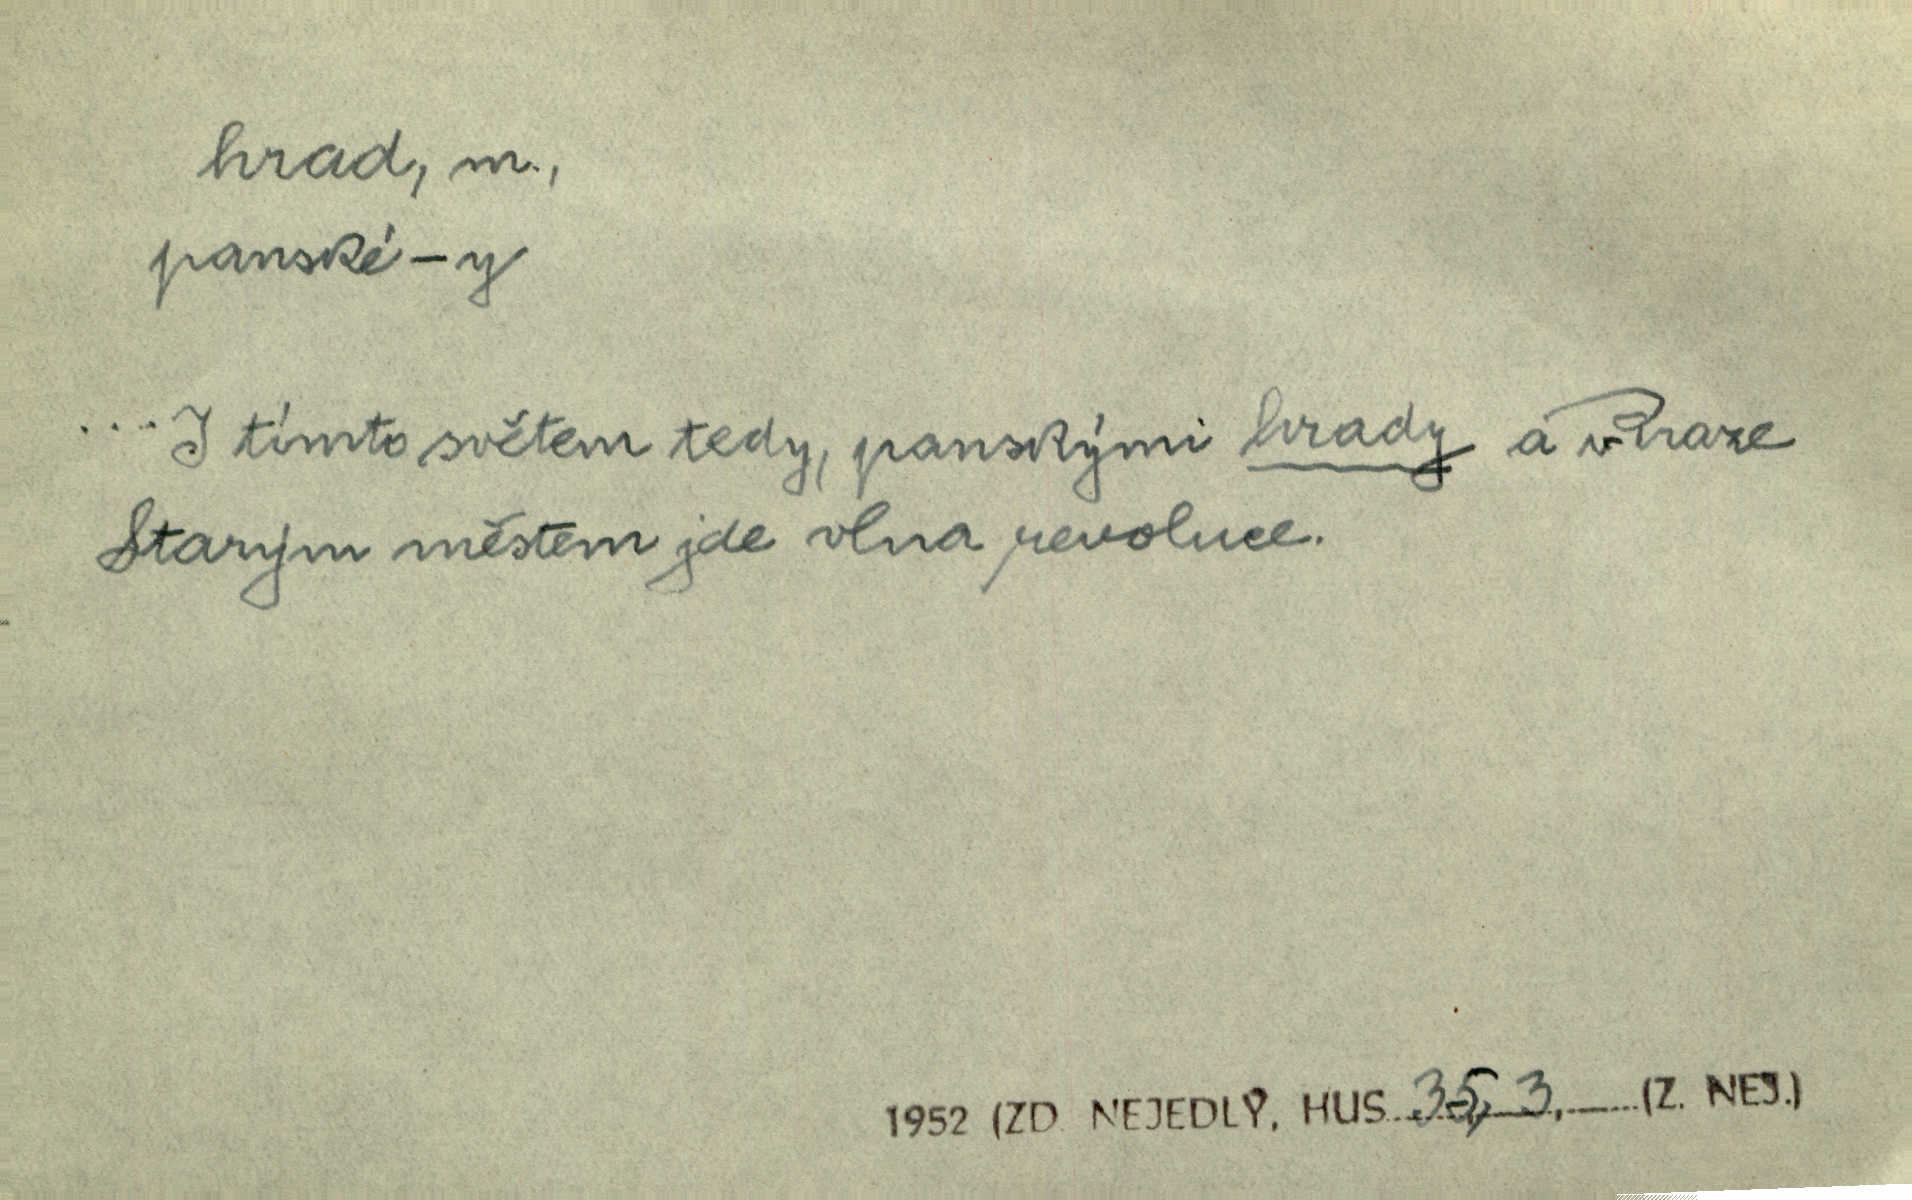 hrad, m.,
panské -y
...I tímto světem tedy, panskými hrady a v Praze
Starým městem jde vlna revoluce.
1952 (ZD. NEJEDLÝ, HUS 35, 3, (Z. NEJ.)